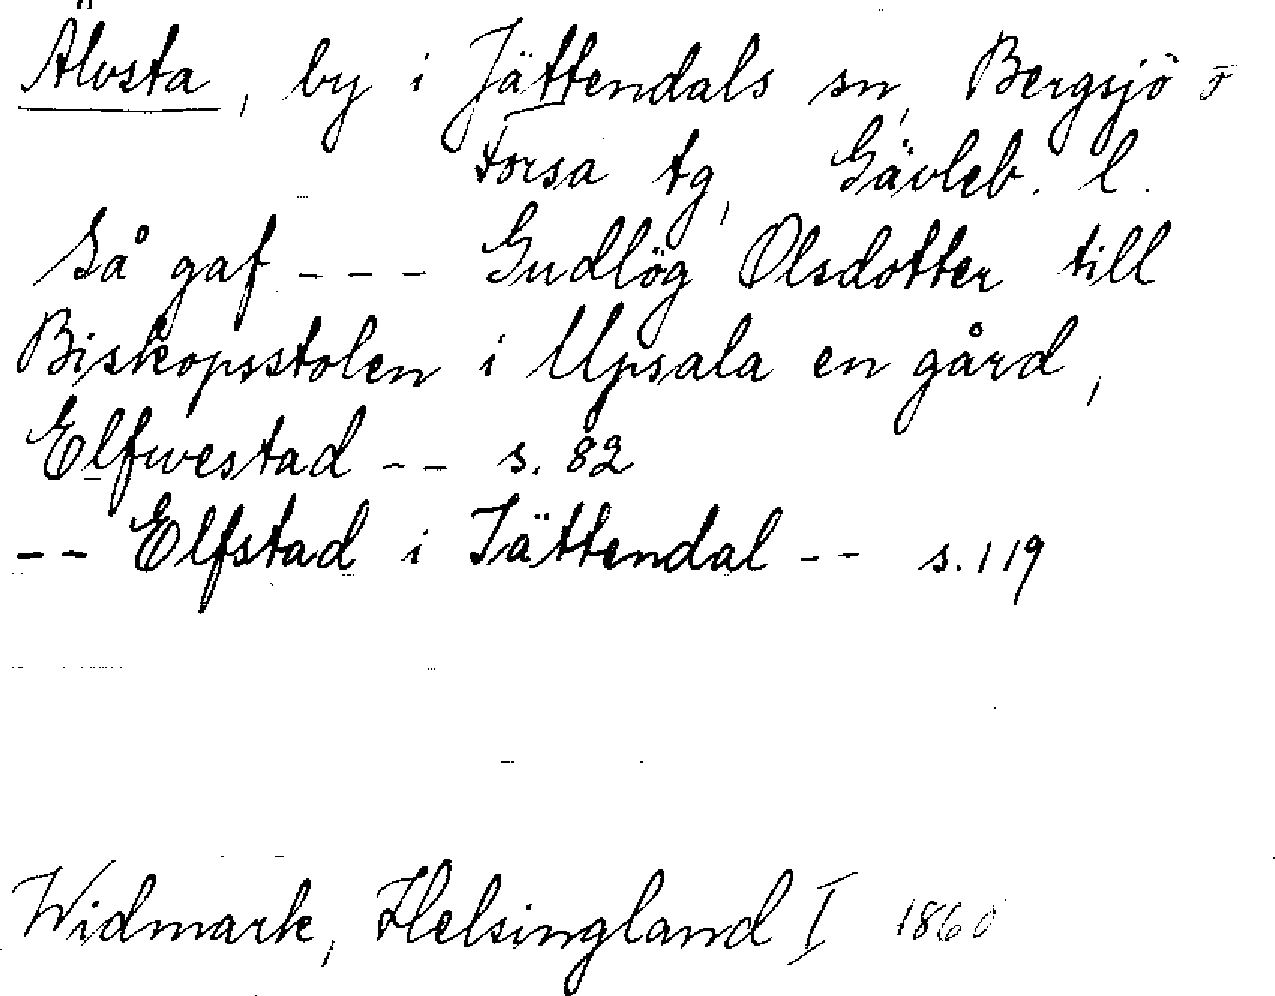 Älvsta, by i Jättendals sn, Bergsjö o
Forsa tg, Gävleb. l.
Så gaf - - - Gudlög Olsdotter till
Biskopsstolen i Upsala en gård,
Elfwestad - - s. 82
- - Elfstad i Jättendal - - s. 119
Widmark, Helsingland I 1860